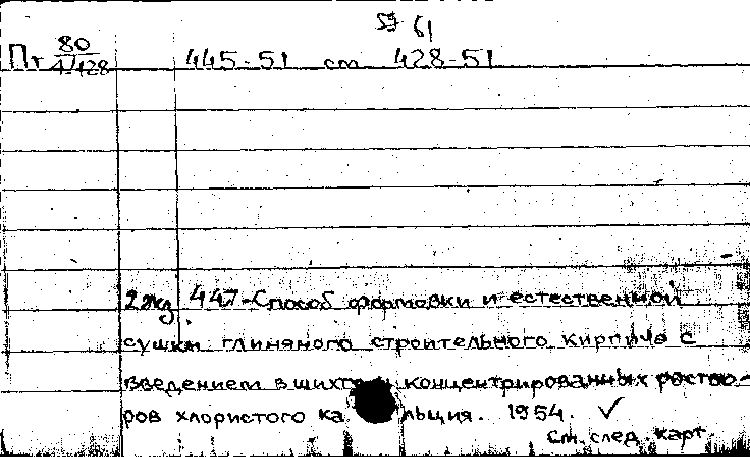 61
Пт 80/4/428 445-51 ст 428-51
2 экз 447-Способ формовки и естественной
сушки глиняного строительного кирпича с
введением в шихту концентрированных раство-
ров хлористого кальция. 1954. ✓
См. след. карт